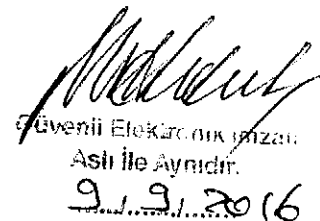 Güvenli Elektronik İmzalı
Aslı İle Aynıdır.
9.1.9.1.2016